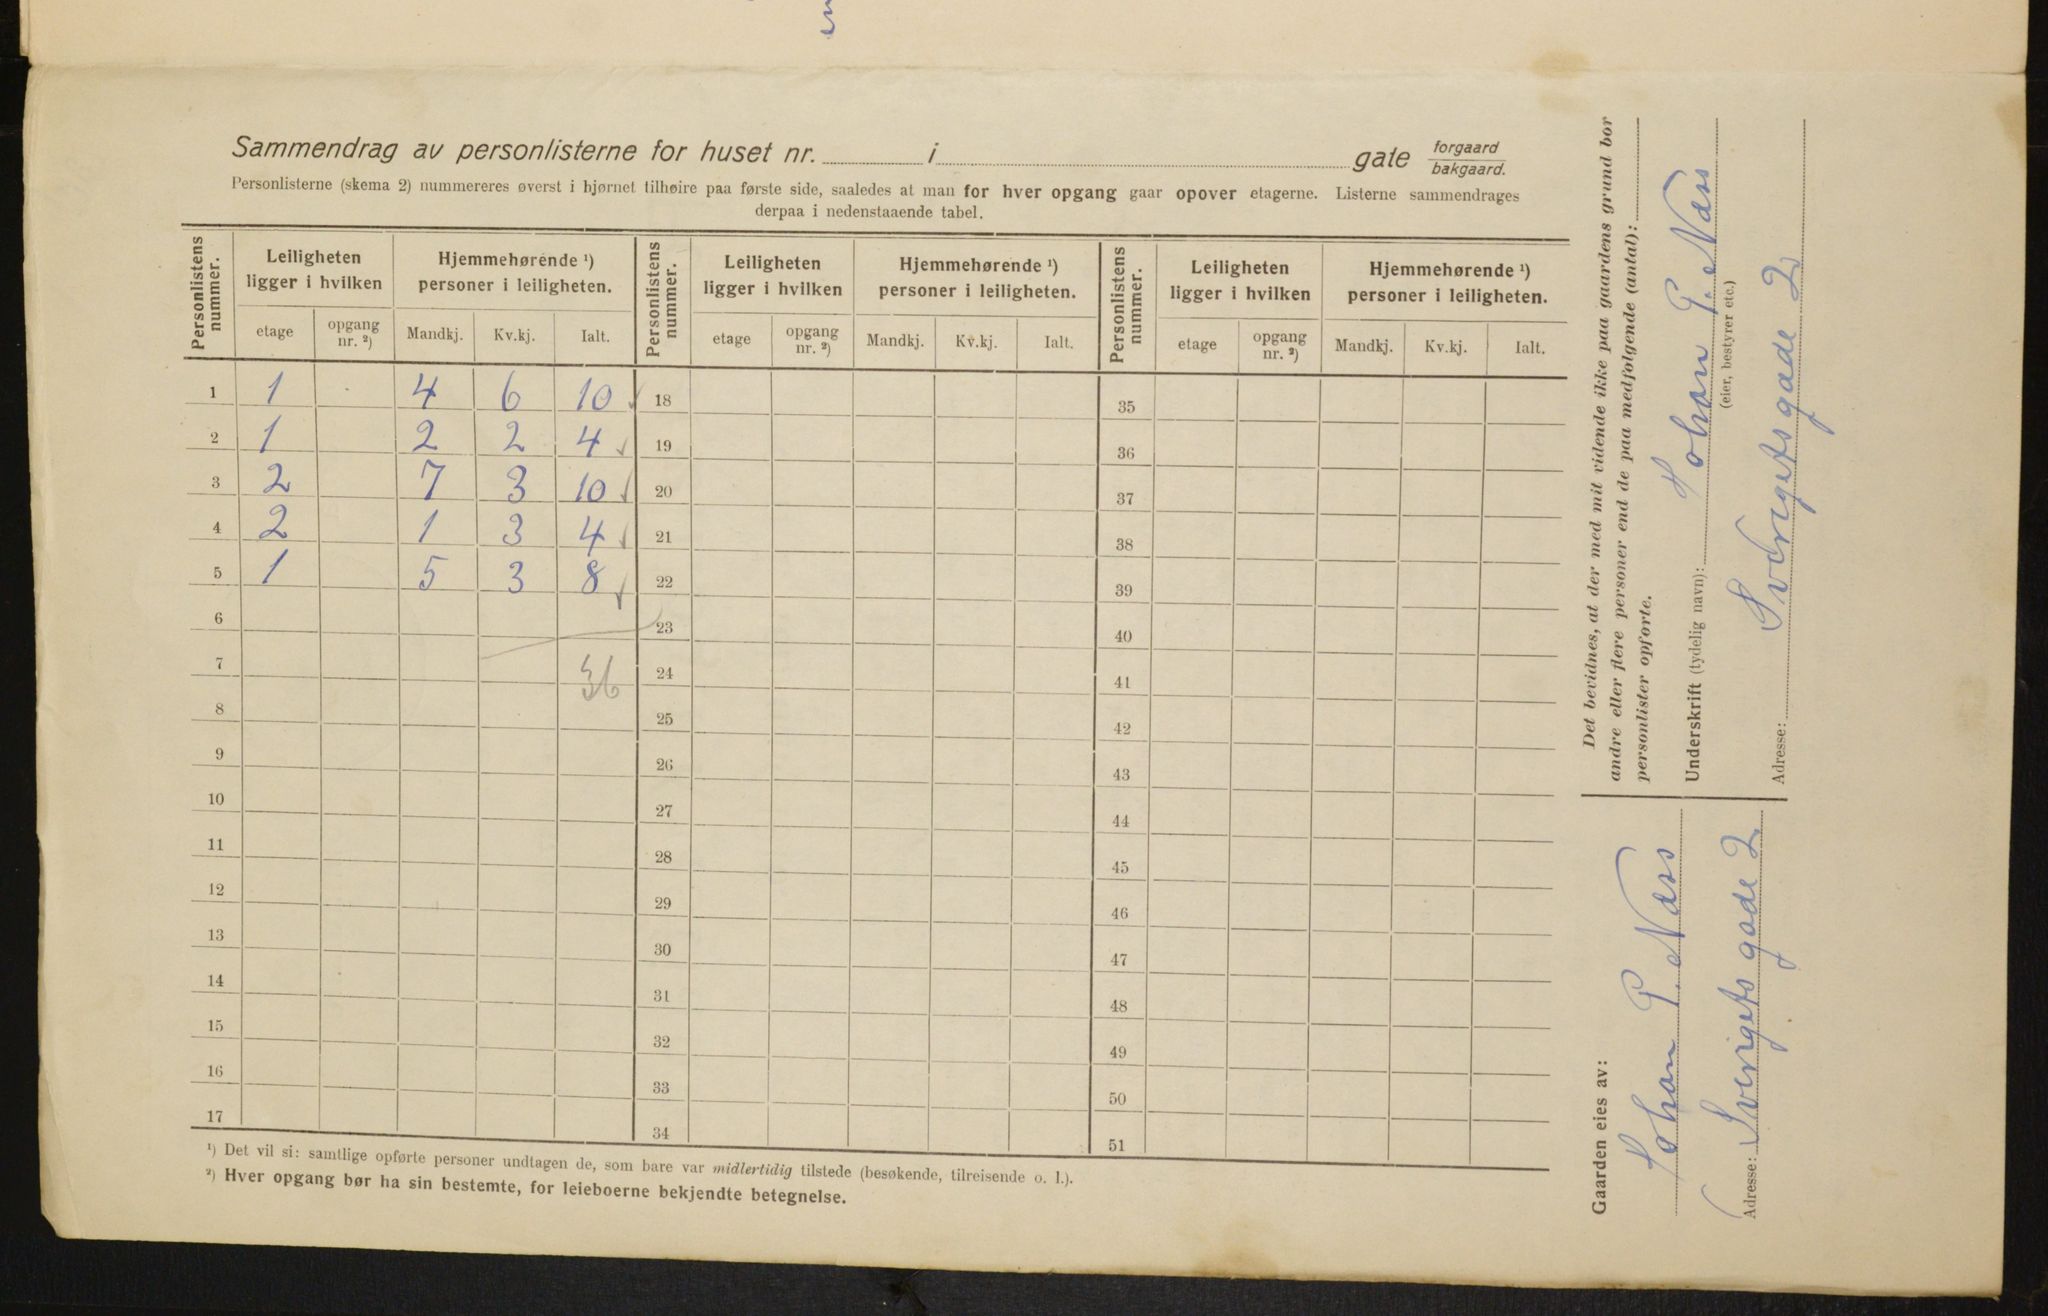 Sammendrag av personlisterne for huset nr. i gate forgaard bakgaard.
Personlisterne (skema 2) nummereres øverst i hjørnet tilhøire paa første side, saaledes at man for hver opgang gaar opover etagerne. Listerne sammendrages
derpaa i nedenstaaende tabel.
Personlistens nummer. Leiligheten ligger i hvilken Hjemmehørende ¹) personer i leiligheten. Personlistens nummer. Leiligheten ligger i hvilken Hjemmehørende ¹) personer i leiligheten. Personlistens nummer. Leiligheten ligger i hvilken Hjemmehørende ¹) personer i leiligheten.
etage opgang nr. ²) Mandkj. Kv.kj. Ialt. etage opgang nr. ²) Mandkj. Kv.kj. Ialt. etage opgang nr. ²) Mandkj. Kv.kj. Ialt.
1 1 4 6 10 18 35
2 1 2 2 4 19 36
3 2 7 3 10 20 37
4 2 1 3 4 21 38
5 1 5 3 8 22 39
6 23 40
7 36 24 41
8 25 42
9 26 43
10 27 44
11 28 45
12 29 46
13 30 47
14 31 48
15 32 49
16 33 50
17 34 51
¹) Det vil si: samtlige opførte personer undtagen de, som bare var midlertidig tilstede (besøkende, tilreisende o. l.).
²) Hver opgang bør ha sin bestemte, for leieboerne bekjendte betegnelse.
Det bevidnes, at der med mit vidende ikke paa gaardens grund bor
andre eller flere personer end de paa medfølgende (antal):
personlister opførte.
Underskrift (tydelig navn): Johan P. Næss
(eier, bestyrer etc.)
Adresse: Sverigetsgade 2
Gaarden eies av:
Johan P. Næss
Adresse: Sverigetsgade 2